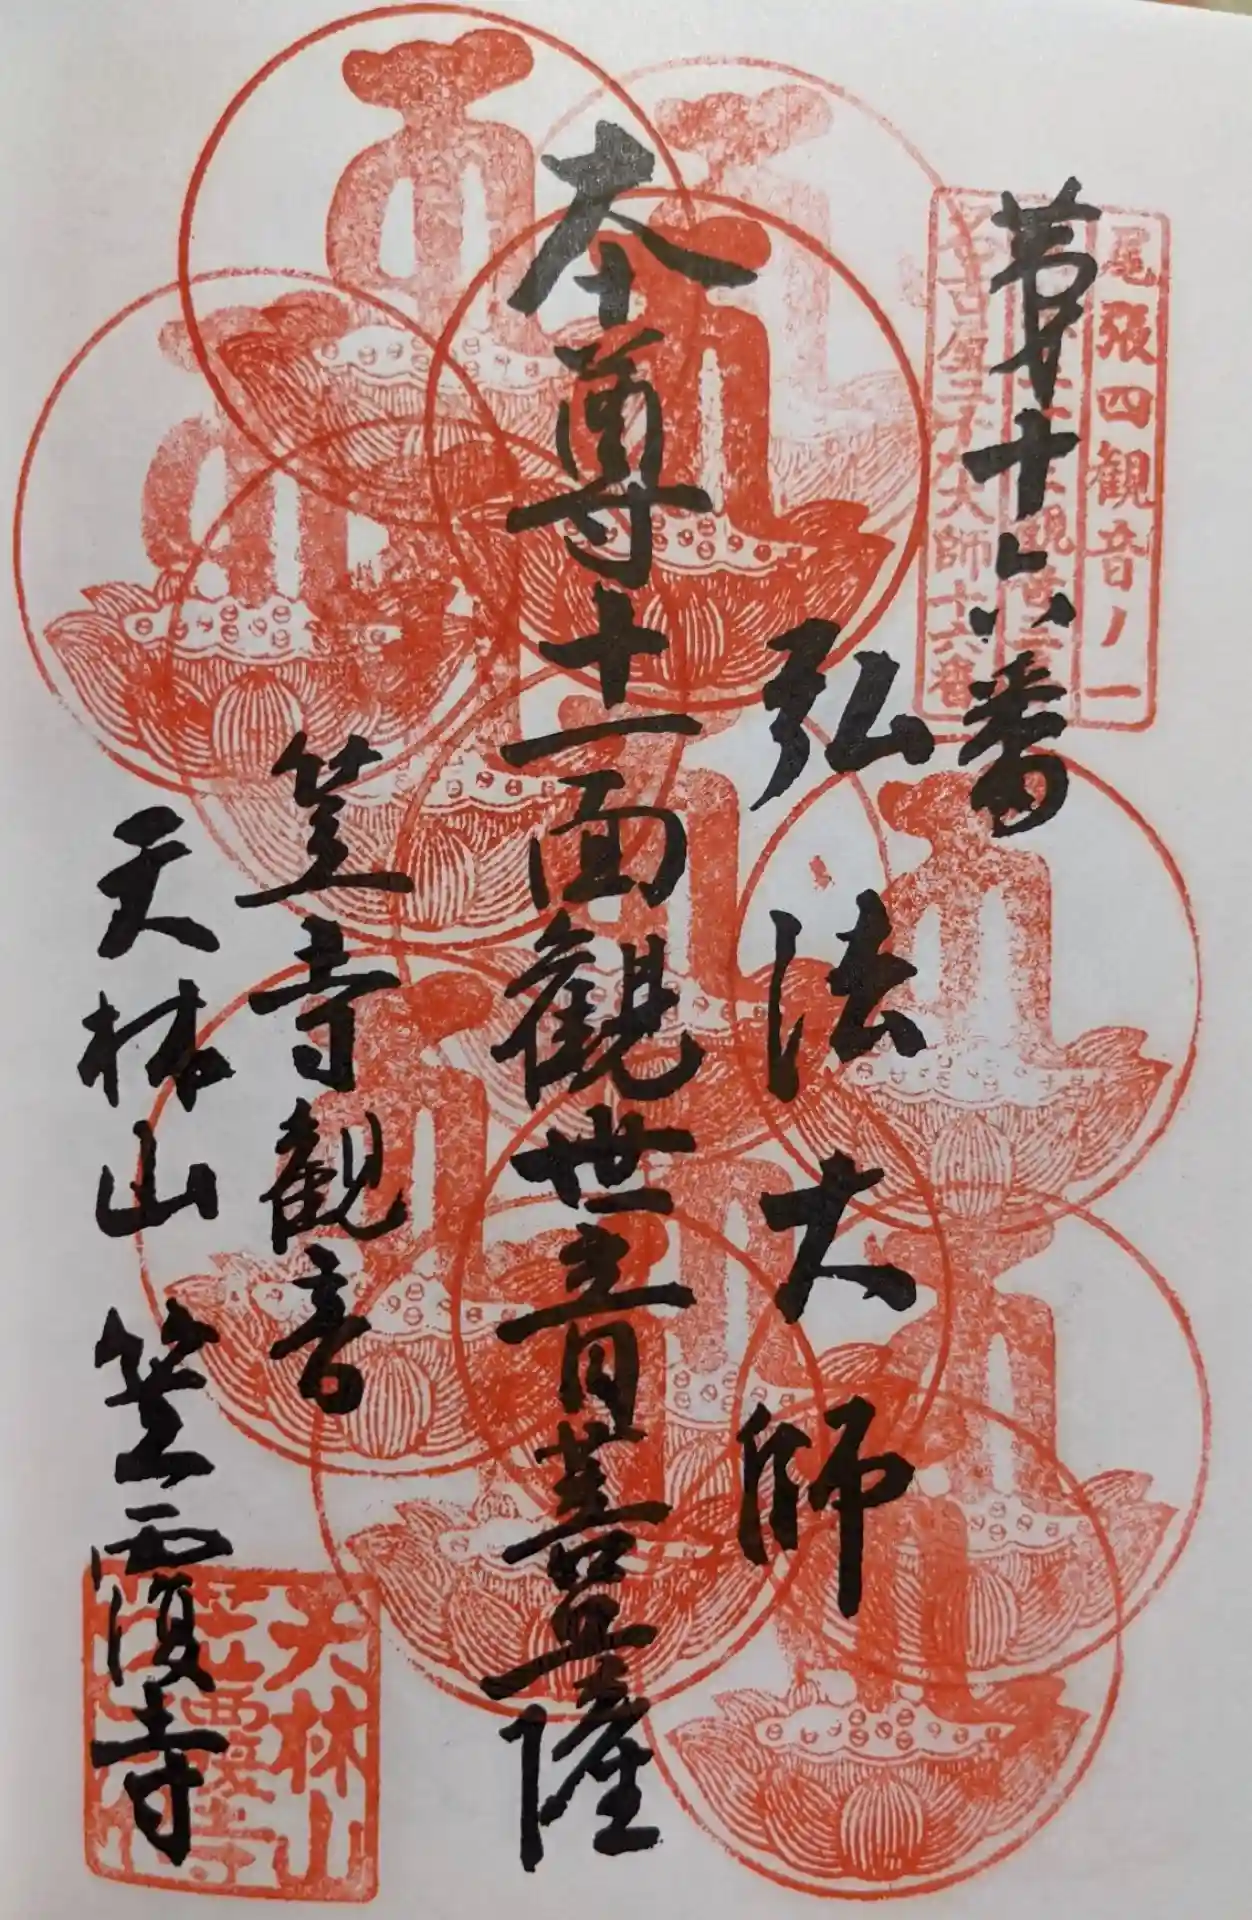 尾張四観音ノ一
名古屋二十一大師十六番
第十六番
弘法大師
本尊十一面觀世音菩薩
笠寺観音
天林山 笠覆寺
天林山
笠覆寺